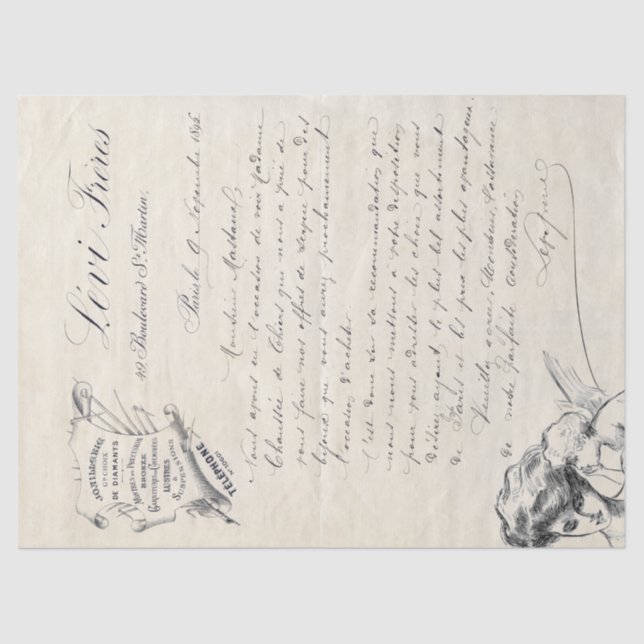 JOAILLERIE
Gd CHOIX
DE DIAMANTS
MONTRES DE PRÉCISION
BRONZE
GARNITURES DE CHEMINÉES
LUSTRES
&
SUSPENSIONS
TÉLÉPHONE
Lévi Frères
49, Boulevard St Martin.
Paris le 9 Novembre 1896
Monsieur Mastaud
Nous avons eu l'occasion de voir Madame
Chaussée de Thiers qui nous a prié de
vous faire nos offres de service pour des
bijoux que vous aurez prochainement
l'occasion d'acheter.
C'est donc sur sa recommandation que
nous nous mettons à votre disposition
pour vous adresser les choix que vous
désirez ayant le plus bel assortiment
de Paris et les prix les plus avantageux.
Veuillez agréer, Monsieur, l'assurance
de notre parfaite considération